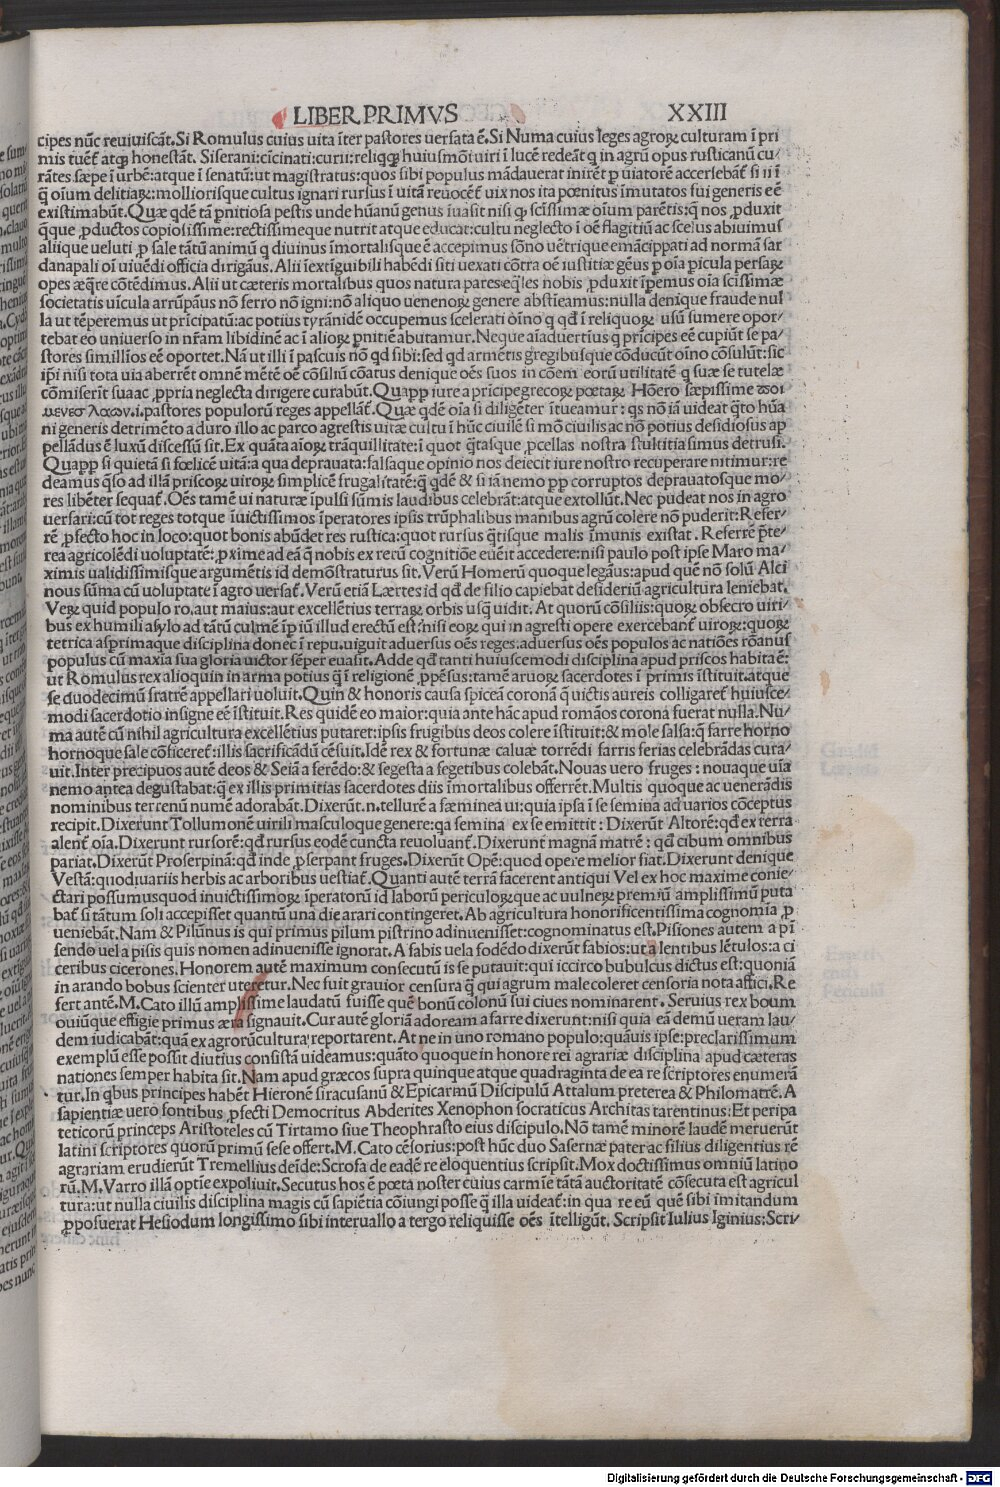 LIBER PRIMVS XXIII
cipes nūc reuiuiscāt. Si Romulus cuius uita īter pastores uersata ē. Si Numa cuius leges agroꝝ culturam ī pri
mis tuēt̃ atqꝫ honestāt. Si serani: cīcinati: curii: reliqꝗ huiusmōi uiri ī lucē redeāt q̄ in agrū opus rusticanū cu⸗
rātes sæpe ī urbē: atque ī senatū: ut magistratus: quos sibi populus mādauerat inirēt ꝑ uiatorē accersebāt̃ si ii ī
q̄ oīum delitiaꝝ: molliorisque cultus ignari rursus ī uitā reuocēt̃ uix nos ita pœnitus īmutatos sui generis eē
existimabūt. Quæ qdē tā ꝑnitiosa pestis unde hūanū genus īuasit nisi qꝫ scīssimæ oīum parētis: q̄ nos ꝓduxit
q̄que ꝓductos copiosissime: rectissimeque nutrit atque educat: cultu neglecto ī oē flagitiū ac scelus abiuimus
aliique ueluti ꝓ sale tātū animū q̄ diuinus īmortalisque ē accepimus sōno uētrique emācippati ad normā sar
danapali oī uiuēdi officia dirigāus. Alii īextīguibili habēdi siti uexati cōtra oē iustitiæ gēus ꝑ oīa ꝑicula persaꝝ
opes æq̄re cōtēdimus. Alii ut cæteris mortalibus quos natura pares eq̄les nobis ꝓduxit īꝑemus oīa scīssimæ
societatis uīcula arrūpāus nō ferro nō igni: nō aliquo uenenoꝝ genere abstīeamus: nulla denique fraude nul
la ut tēperemus ut prīcipatū: ac potius tyrānidē occupemus scelerati oīno q̄ qd̄ ī reliquoꝝ usū sumere opor⸗
tebat eo uniuerso in nr̄am libidinē ac ī alioꝝ ꝑnitiē abutamur. Neque aīaduertius q̄ prīcipes eē cupiūt se pa⸗
stores simillīos eē oportet. Nā ut illi ī pascuis nō qd̄ sibi: sed qd̄ armētis gregibusque cōducūt oīno cōsulūt: sic
ip̄i nisi tota uia aberrēt omnē mētē oē cōsiliū cōatus denique oēs suos in cōem eorū utilitatē q̄ suæ se tutelæ
cōmiserīt sua ac ꝓpria neglecta dirigere curabūt. Quapꝓ iure a prīcipe grecoꝝ poetaꝝ Hōero sæpissime ποι
μενεσ λαων. i. pastores populorū reges appellāt̃. Quæ qdē oīa si diligēter ītueamur: qs nō iā uideat q̄to hūa
ni generis detrimēto a duro illo ac parco agrestis uitæ cultu ī hūc ciuilē si mō ciuilis ac nō potius desidiosus ap
pellādus ē luxū discessū sit. Ex quāta aīoꝝ trāquillitate: ī quot q̄tasque ꝓcellas nostra stultitia simus detrusi.
Quapꝓ si quietā si fœlicē uitā: a qua deprauata: falsaque opinio nos deiecit iure nostro recuperare nitimur: re
deamus q̄so ad illā priscoꝝ uiroꝝ simplicē frugalitatē: q̄ qdē & si iā nemo ꝓp corruptos deprauatosque mo⸗
res libēter sequat̃. Oēs tamē ui naturæ īpulsi sūmis laudibus celebrāt: atque extollūt. Nec pudeat nos in agro
uersari: cū tot reges totque īuictissimos īperatores ipsis trūphalibus manibus agrū colere nō puderit: Refer⸗
rē ꝓfecto hoc in loco: quot bonis abūdet res rustica: quot rursus q̄tisque malis īmunis existat. Referrē p̄te⸗
rea agricolēdi uoluptatē: ꝓxime ad eā q̄ nobis ex rerū cognitiōe euēit accedere: nisi paulo post ipse Maro ma⸗
ximis ualidissimisque argumētis id demōstraturus sit. Verū Homerū quoque legāus: apud quē nō solū Alci
nous sūma cū uoluptate ī agro uersat̃. Verū etiā Laertes id qd̄ de filio capiebat desideriū agricultura leniebat.
Veꝝ quid populo ro. aut maius: aut excellētius terraꝝ orbis usq̄ uidit. At quorū cōsiliis: quoꝝ obsecro uiri⸗
bus ex humili asylo ad tātū culmē īpiū illud erectū est: nisi eoꝝ qui in agresti opere exercebant̃ uiroꝝ: quoꝝ
tetrica asprimaque disciplina donec ī repu. uiguit aduersus oēs reges. aduersus oēs populos ac natiōes rōanus
populus cū maxīa sua gloria uictor sēper euasit. Adde qd̄ tanti huiuscemodi disciplina apud priscos habita ē:
ut Romulus rex alioquin in arma potius q̄ ī religionē ꝓpēsus: tamē aruoꝝ sacerdotes ī primis īstituit. atque
se duodecimū fratrē appellari uoluit. Quin & honoris causa spiceā coronā q̄ uictis aureis colligaret̃ huiusce⸗
modi sacerdotio insigne eē īstituit. Res quidē eo maior: quia ante hāc apud romāos corona fuerat nulla. Nu⸗
ma autē cū nihil agricultura excellētius putaret: ipsis frugibus deos colere īstituit: & mole salsa: q̄ farre horno
hornoque sale cōficeret̃: illis sacrificādū cēsuit. Idē rex & fortunæ caluæ torrēdi farris ferias celebrādas cura⸗
uit. Inter precipuos autē deos & Seiā a ferēdo: & segesta a segetibus colebāt. Nouas uero fruges: nouaque uīa
nemo antea degustabat: q̄ ex illis primitias sacerdotes diis īmortalibus offerrēt. Multis quoque ac uenerādis
nominibus terrenū numē adorabāt. Dixerūt. n. tellurē a fæminea ui: quia ipsa ī se semina ad uarios cōceptus
recipit. Dixerunt Tollumonē uirili masculoque genere: qa semina ex se emittit: Dixerūt Altorē: qd̄ ex terra
alent̃ oīa. Dixerunt rursorē: qd̄ rursus eodē cuncta reuoluant̃. Dixerunt magnā matrē: qd̄ cibum omnibus
pariat. Dixerūt Proserpinā: qd̄ inde ꝓserpant fruges. Dixerūt Opē: quod opere melior fiat. Dixerunt denique
Vestā: quod uariis herbis ac arboribus uestiat̃. Quanti autē terrā facerent antiqui Vel ex hoc maxime conie⸗
ctari possumus quod inuictissimoꝝ īperatorū id laborū periculoꝝque ac uulneꝝ premiū amplissimū puta
bāt̃ si tātum soli accepisset quantū una die arari contingeret. Ab agricultura honorificentissima cognomīa ꝓ
ueniebāt. Nam & Pilūnus is qui primus pilum pistrino adinuenisset: cognominatus est. Pisiones autem a pī
sendo uel a pisis quis nomen adinuenisse ignorat. A fabis uel a fodēdo dixerūt fabios: ut a lentibus lētulos: a ci
ceribus cicerones. Honorem autē maximum consecutū is se putauit: qui iccirco bubulcus dictus est: quoniā
in arando bobus scienter uteretur. Nec fuit grauior censura q̄ qui agrum male coleret censoria nota affici. Re
fert antē. M. Cato illū amplissime laudatū fuisse quē bonū colonū sui ciues nominarent. Seruius rex boum
ouiūque effigie primus æra signauit. Cur autē gloriā adoream a farre dixerūt: nisi quia eā demū ueram lau⸗
dem iudicabāt: quā ex agrorū cultura reportarent. At ne in uno romano populo: quāuis ipse: preclarissimum
exemplū esse possit diutius consistā uideamus: quāto quoque in honore rei agrariæ disciplina apud cæteras
nationes semper habita sit. Nam apud græcos supra quinque atque quadraginta de ea re scriptores enumerā
tur. In q̄bus principes habēt Hieronē siracusanū & Epicarmū Discipulū Attalum preterea & Philomatrē. A
sapientiæ uero fontibus ꝓfecti Democritus Abderites Xenophon socraticus Architas tarentinus: Et peripa
teticorū princeps Aristoteles cū Tirtamo siue Theophrasto eius discipulo. Nō tamē minorē laudē meruerūt
latini scriptores quorū primū sese offert. M. Cato cēsorius: post hūc duo Sasernæ pater ac filius diligentius rē
agrariam erudierūt Tremellius deīde: Scrofa de eadē re eloquentius scripsit. Mox doctissimus omniū latino
rū. M. Varro illā optīe expoliuit. Secutus hos ē poeta noster cuius carmīe tātā auctoritatē cōsecuta est agricul
tura: ut nulla ciuilis disciplina magis cū sapiētia cōiungi posse q̄ illa uideat̃: in qua re eū quē sibi imitandum
ꝓposuerat Hesiodum longissimo sibi interuallo a tergo reliquisse oēs ītelligūt. Scripsit Iulius Iginius: Scri⸗
Digitalisierung gefördert durch die Deutsche Forschungsgemeinschaft - DFG